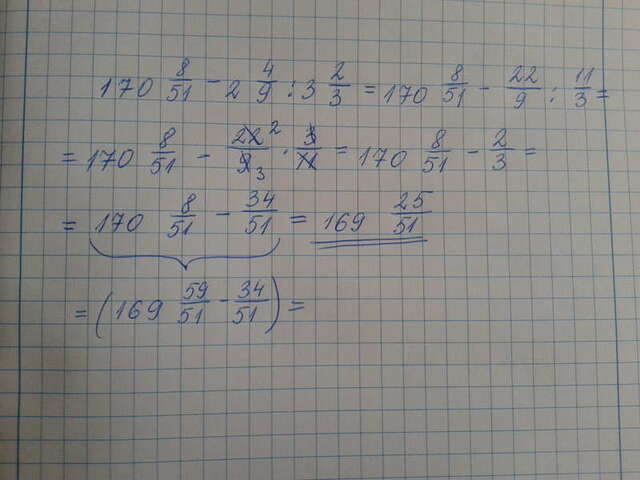 170 8/51 - 2 4/9 : 3 2/3 = 170 8/51 - 22/9 : 11/3 =
= 170 8/51 - 22 2/9 3 · 3/11 = 170 8/51 - 2/3 =
= 170 8/51 - 34/51 = 169 25/51
= (169 59/51 - 34/51) =